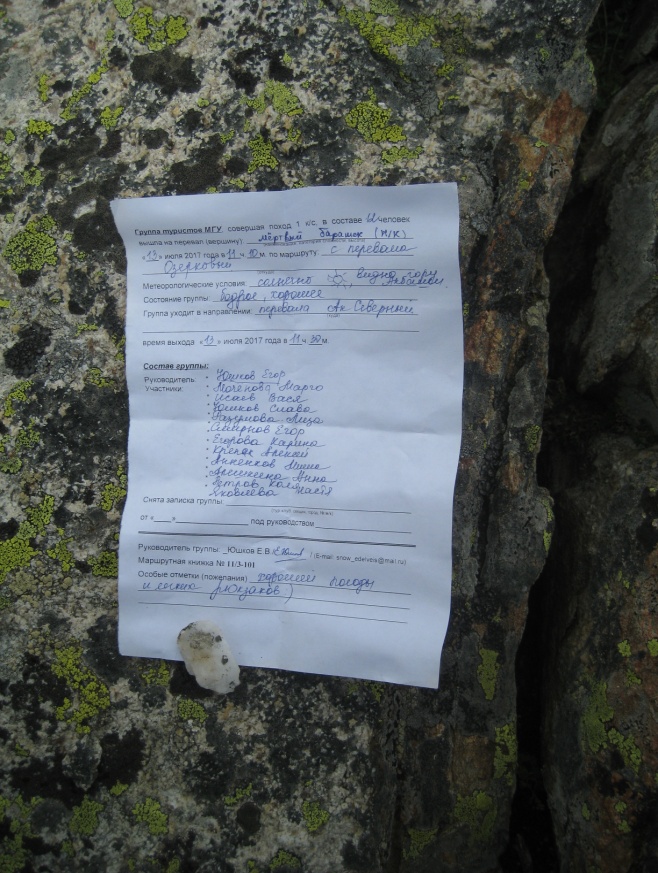 Группа туристов МГУ, совершая поход 1 к/с. в составе 12 человек
вышла на перевал (вершину): мёртвый барашек (Н/К)
«13» июля 2017 года в 11 ч. 10 м. по маршруту: с перевала
Озерковый
Метеорологические условия: солнечно видно гору
Состояние группы: бодрое, хорошее
Группа уходит в направлении: перевала Ак Северный
время выхода «13» июля 2017 года в 11 ч 30 м.
Состав группы:
Руководитель: Юшков Егор
Участники: Моченова Марго
Исаев Вася
Юшков Слава
Лиза
Смирнов Егор
Егорова Карина
Арсений
Анненков Миша
Анна
Петров Коля
Яковлева Настя
Снята записка группы:
от «___»___ под руководством
Руководитель группы: _Юшков Е.В. / (E-mail: snow_edelveis@mail.ru)
Маршрутная книжка № 11/3-101
Особые отметки (пожелания) хорошей погоды
и рюкзаков )